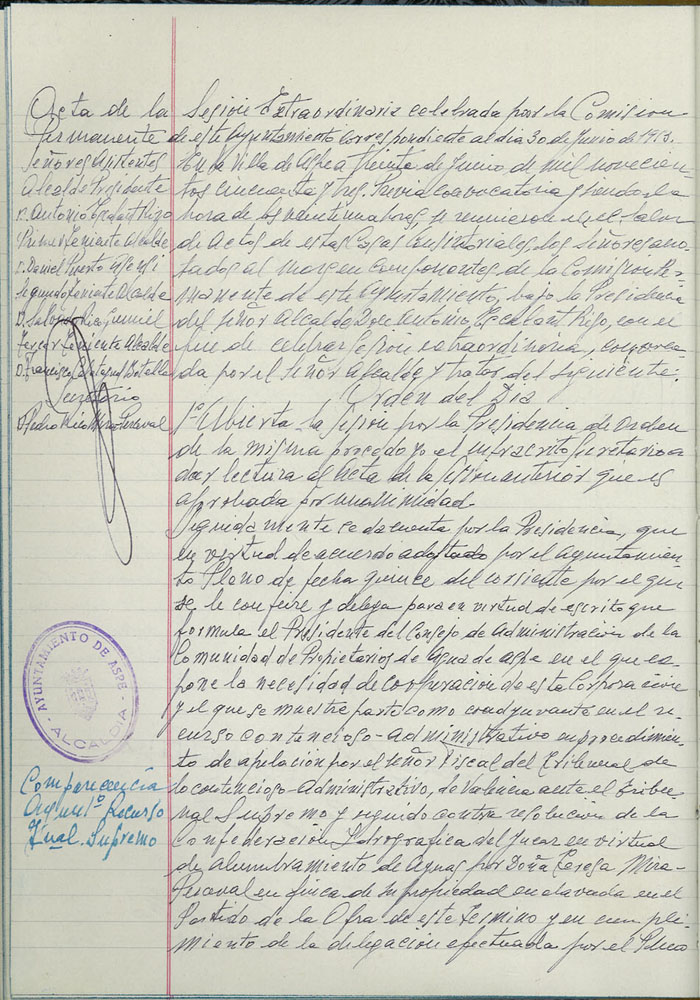 Acta de la Sesion Extraordinaria celebrada por la Comision
Permanente de este Ayuntamiento correspondiente al dia 30 de Junio de 1953.
Señores Asistentes
Alcalde Presidente
D. Antonio Escalant Rigo
Primer Teniente Alcalde
D. Daniel Puerto Asensi
Segundo Teniente Alcalde
D. Salvador Rico Gumiel
Tercer Teniente Alcalde
D. Francisco Botella
Secretario
D. Pedro Mira-Perceval
En la Villa de Aspe a treinta de Junio de mil novecien-
tos cincuenta y tres. Previa convocatoria y siendo la
hora de las veintiuna horas, se reunieron en el Salon
de Actos de estas Casas Consistoriales, los señores ano-
tados al margen componentes de la Comision Per-
manente de este Ayuntamiento, bajo la Presidencia
del señor Alcalde Don Antonio Escalant Rigo, con el
fin de celebrar sesion extraordinaria, convoca-
da por el señor Alcalde y tratar del siguiente:
Orden del Dia
1º Abierta la sesion por la Presidencia de orden
de la misma procedo yo el infrascrito Secretario a
dar lectura al acta de la sesion anterior que es
aprobada por unanimidad.
Seguidamente se da cuenta por la Presidencia, que
en virtud de acuerdo adoptado por el Ayuntamien-
to Pleno de fecha quince del corriente por el que
se le confiere y delega para en virtud de escrito que
formula el Presidente del Consejo de Administración de la
Comunidad de Propietarios de Agua de Aspe en el que ex-
pone la necesidad de cooperación de esta Corporación
y el que se muestre parte como coadyuvante en el re-
curso contencioso-Administrativo en procedimien-
to de apelación por el señor Fiscal del Tribunal de
lo contencioso-Administrativo, de Valencia ante el Tribu-
nal Supremo y seguido contra resolucion de la
Confederación Hidrografica del Jucar en virtud
de alumbramiento de Aguas por Doña Teresa Mira-
Perceval en finca de su propiedad enclavada en el
Partido de la Ofra de este termino y en cumpli-
miento de la delegación efectuada por el Pleno
AYUNTAMIENTO DE ASPE
- ALCALDIA -
Comparecencia
Recurso
Tnal. Supremo